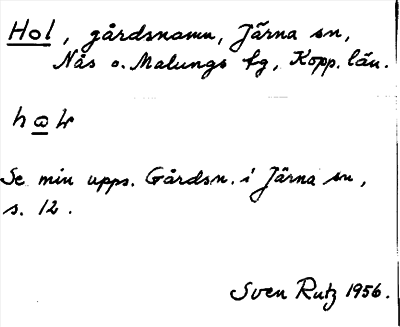 Hol, gårdsnamn, Järna sn,
Nås o. Malungs tg, Kopp. län.
Se min upps. Gårdsn. i Järna sn,
s. 12.
Sven Rutz 1956.